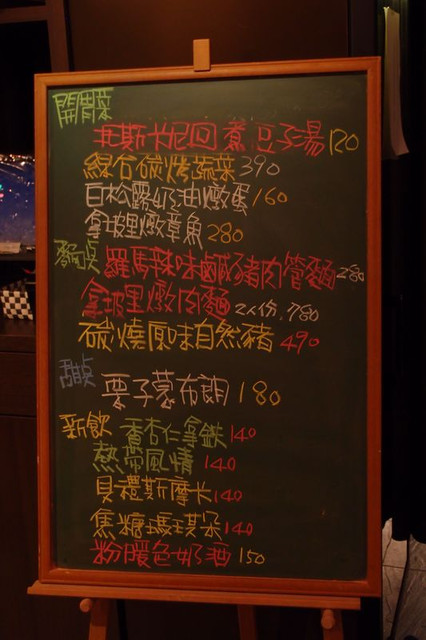 開胃菜
托斯卡尼回煮豆子湯 120
綜合碳烤蔬菜 390
白松露奶油燉蛋 160
拿坡里燉章魚 280
麵點
羅馬辣味鹹豬肉管麵 280
拿坡里燉肉麵 2人份.780
碳燒原味自然豬 490
甜點
栗子蒙布朗 180
新飲
香杏仁拿鐵 140
熱帶風情 140
貝禮斯摩卡 140
焦糖瑪琪朵 140
粉暖色奶酒 150